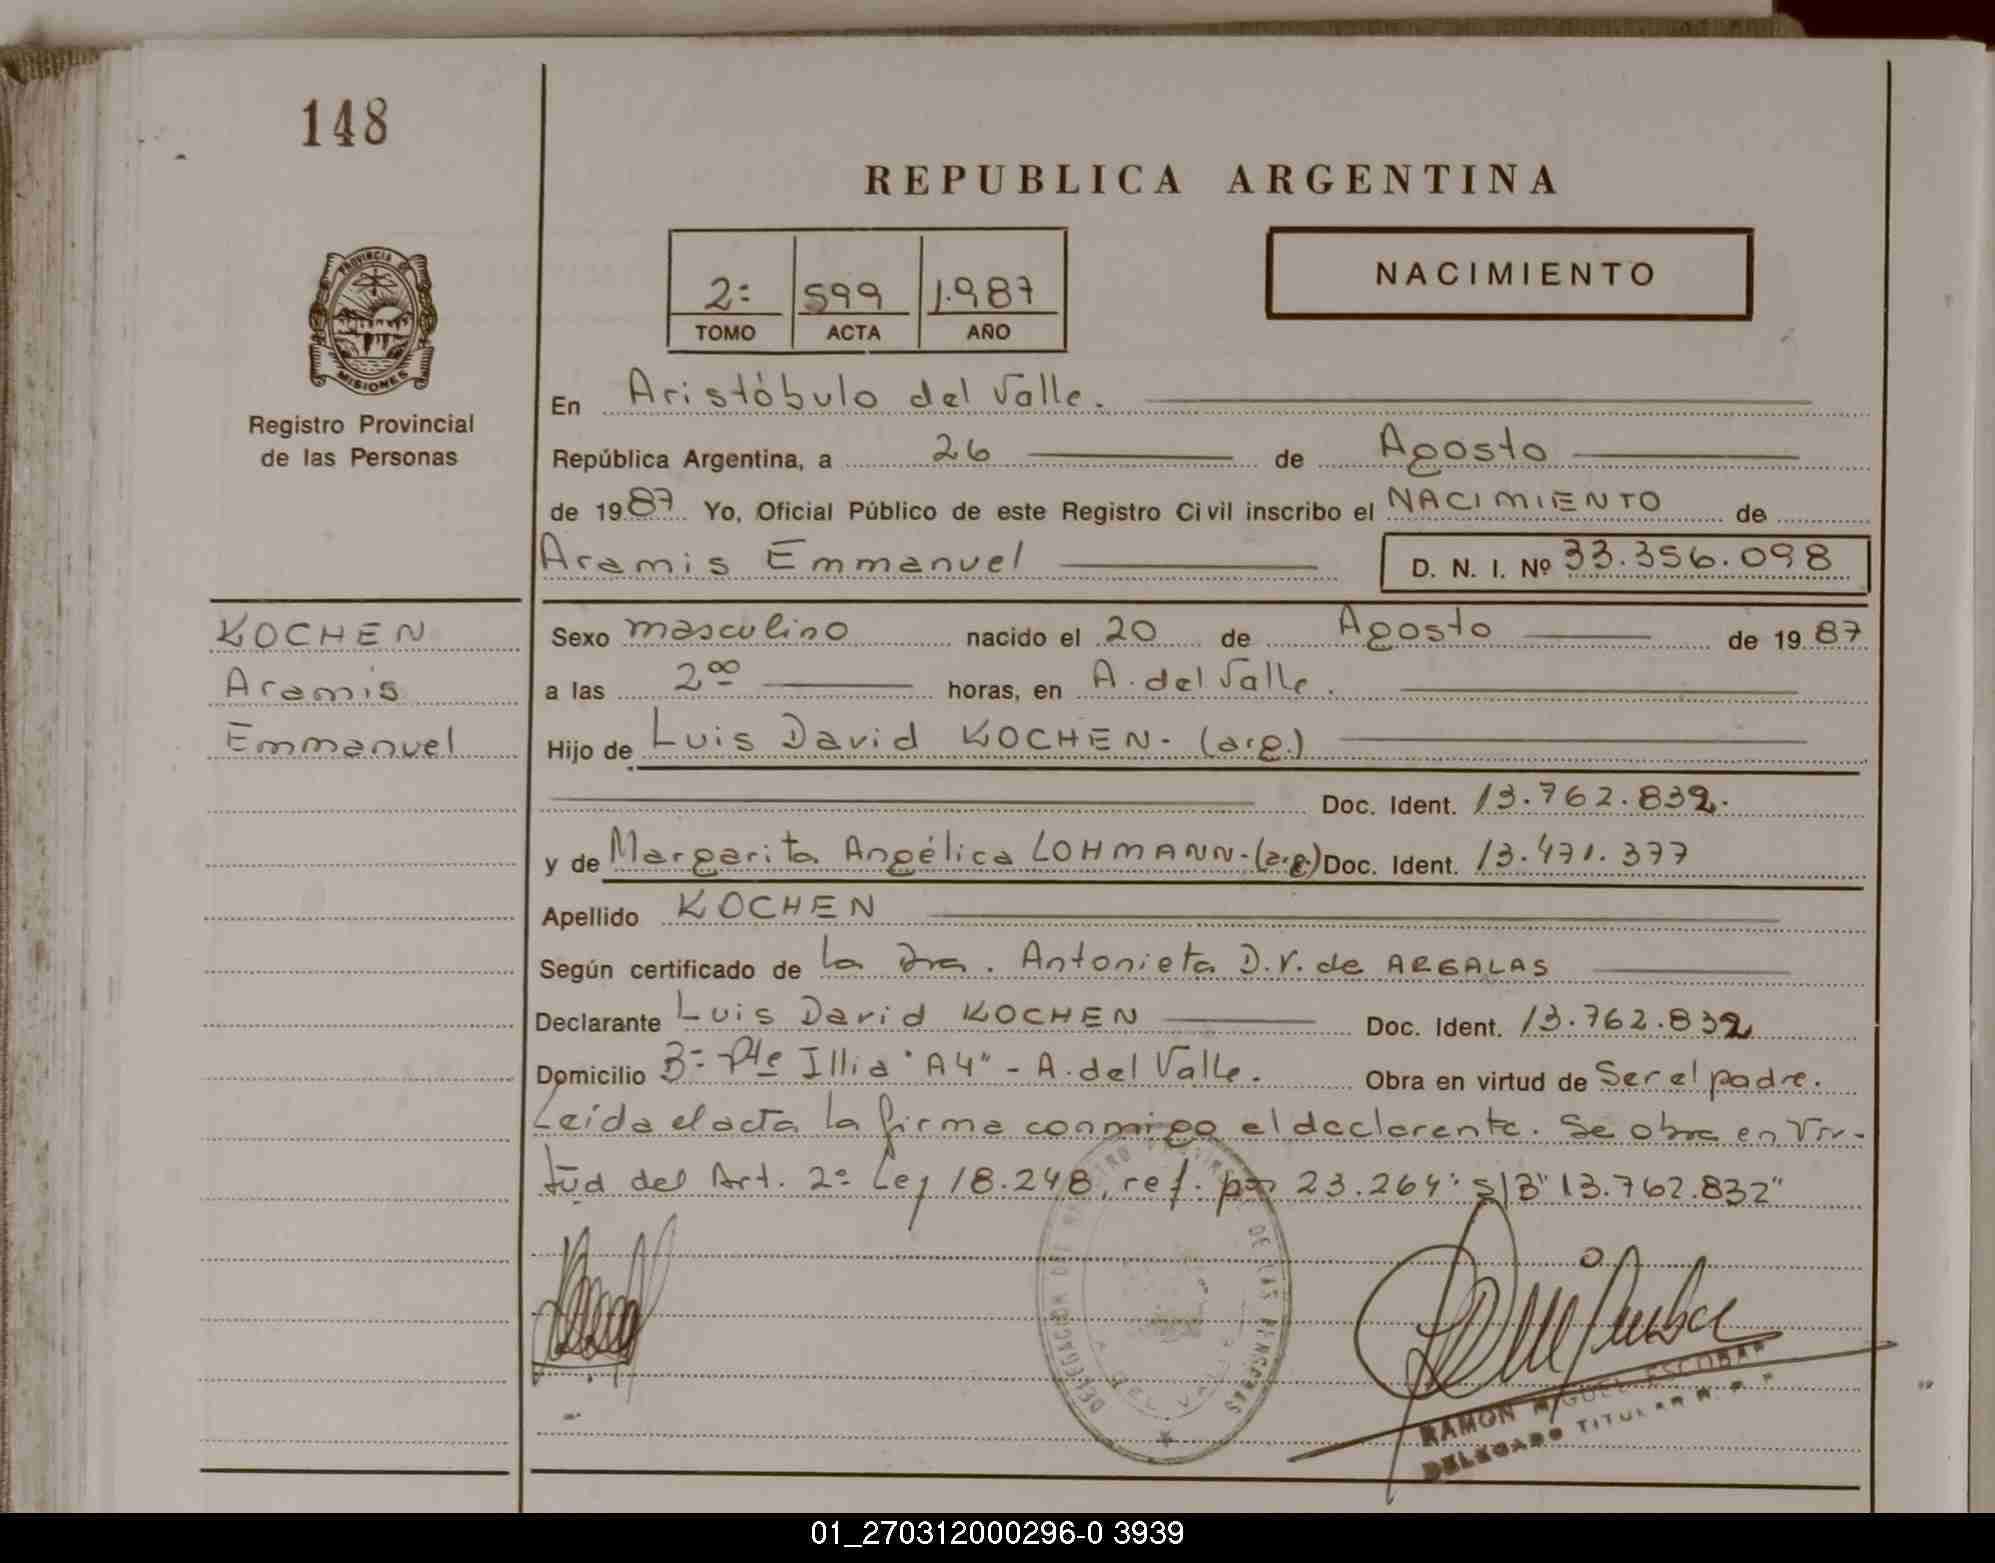 148
REPUBLICA ARGENTINA
2º 599 1.987
TOMO ACTA AÑO
NACIMIENTO
PROVINCIA DE
MISIONES
Registro Provincial
de las Personas
En Aristóbulo del Valle.
República Argentina, a 26 de Agosto
de 1987 Yo, Oficial Público de este Registro Civil inscribo el NACIMIENTO de
Aramis Emmanuel D. N. I. Nº 33.356.098
KOCHEN
Aramis
Emmanuel
Sexo masculino nacido el 20 de Agosto de 1987
a las 2ºº horas, en A. del Valle.
Hijo de Luis David KOCHEN- (arg.)
Doc. Ident. 13.762.832.
y de Margarita Angélica LOHMANN-(arg.) Doc. Ident. 13.471.377
Apellido KOCHEN
Según certificado de la Dra. Antonieta D.V. de ARGALAS
Declarante Luis David KOCHEN Doc. Ident. 13.762.832
Domicilio Bº Pte Illia "A4" - A. del Valle. Obra en virtud de Ser el padre.
Leída el acta la firma conmigo el declarente. Se obra en Vir-
tud del Art. 2º Ley 18.248, ref. por 23.264: S/B "13.762.832"
DELEGACION DEL REGISTRO PROVINCIAL DE LAS PERSONAS
A. DEL VALLE
RAMON MIGUEL ESCOBAR
DELEGADO TITULAR
01_270312000296-0 3939